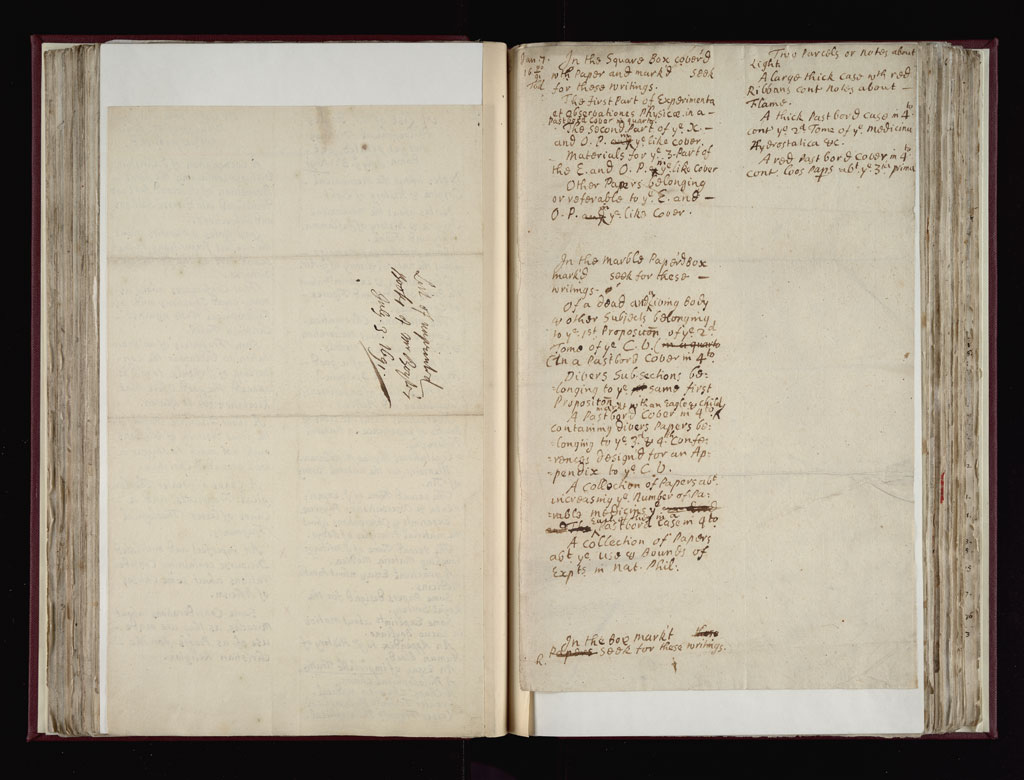 List of unprinted
Books of Mr Boyle's
July. 3. 1691.
Jan. 7.
In the Square Box cover'd
wth Paper and mark'd seek
for these writings.
The first Part of Experimenta
et Observationes Physicæ. in a –
Pastbord Cover in quarto.
The second Part of ye. X. –
and O. P. in ye like cover.
Materials for ye. 3. Part of
the E. and O. P. in ye like cover
Other Papers belonging
or referable to ye. E. and –
O. P. in ye. like Cover.
In the Marble Paper'd Box
mark'd seek for these –
writings.
Of a dead and living Body
& other Subjects belonging
to ye. 1st Proposition of ye 2d
Tome of ye C. V. (in a quarto
(In a Pastbord Cover in 4to
Divers Sub-sections be:
:longing to ye same first
Proposition
markt with an Eagle & child
A Pastbord Cover in 4to
containing divers Papers be:
:longing to ye 3d & 4th Confe:
:rences design'd for an Ap:
:pendix to ye C. V.
A Collection of Papers abt.
increasing ye. Number of Pa:
:rable medicins
Pastbord Case in 4to
A Collection of Papers
abt. ye. Use & Bounds of
Expts in Nat. Phil.
In the Box markt these
R. Papers seek for these writings.
Two Parcels or notes about
Light.
A large thick case wth red
Ribbans cont notes about –
Flame.
A thick Pastbord case in 4to
cont ye 2d Tome of ye Medicina
Hydrostatica &c.
A red Pastbord cover in 4to
cont. loos Paps abt. ye. 3 prima